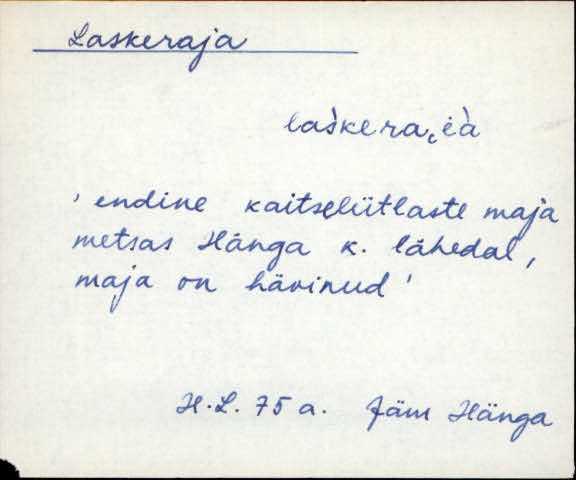 Laskeraja
las̀kera͔i̯à
' endine kaitseliitlaste maja
metsas Hänga k. lähedal,
maja on hävinud '
H.L. 75 a. Jäm Hänga